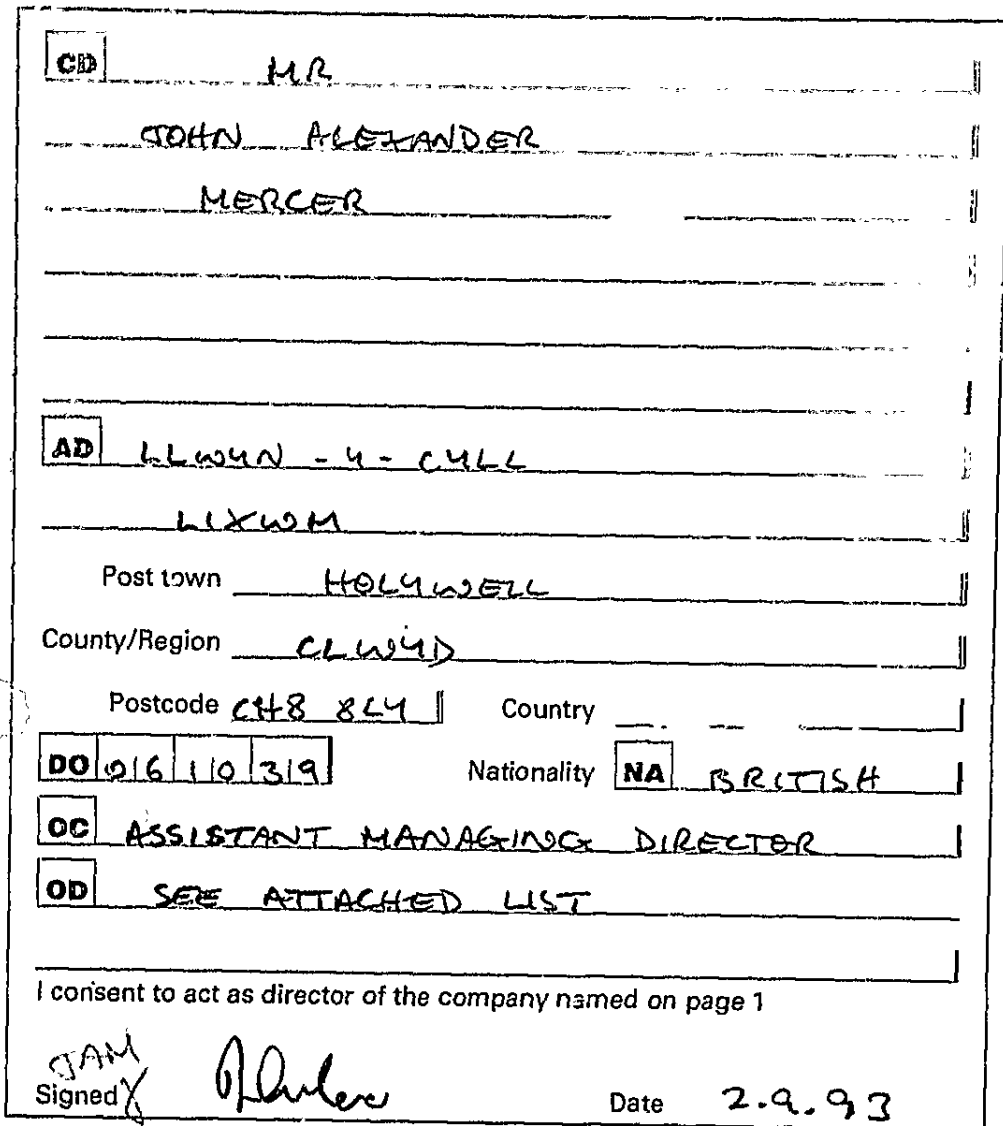 CD MR
JOHN ALEXANDER
MERCER
AD LLWYN - Y - CYLL
LIXWM
Post town HOLYWELL
County/Region CLWYD
Postcode CH8 8LY Country
DO 06 10 39 Nationality NA BRITISH
OC ASSISTANT MANAGING DIRECTOR
OD SEE ATTACHED LIST
I consent to act as director of the company named on page 1
JAM
Signed Date 2.9.93